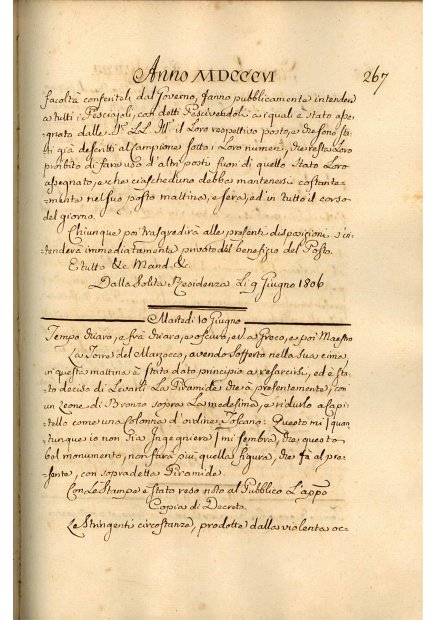 Anno MDCCCVI
267
facoltà conferiteli dal Governo, fanno pubblicamente intendere
a tutti i Pesciajoli, con detti Pescivendoli a i quali è stato asse-
gnato dalle
il Loro respettivo posto, e che sono sta-
ti già descritti al Campione sotto i Loro numeri, che resta Loro
proibito di fare uso d'altri posti fuori di quello stato Loro
assegnato, e che ciascheduno debba mantenersi costante-
mente nel suo posto mattina, e sera, ed in tutto il corso
del giorno.
Chiunque poi trasgredirà alle presenti disposizioni s'in-
tenderà immediatamente privato del beneficio del Posto.
E tutto &c. Mand. &c.
Dalla Solita Residenza Li 9 Giugno 1806
Martedì 10 Giugno
Tempo chiaro, e frà chiaro, e oscuro, e
Greco, e poi Maestro
La Torre del Marzocco, avendo sofferto nella sua cima,
in questa mattina è stato dato principio a resarcirsi, ed è sta-
to deciso di Levarli La Piramide che à presentemente, con
un Leone di Bronzo sopra La medesima, e ridurlo a Capi-
tello come una Colonna d'ordine Toscano: Questo mi (quan-
tunque io non sia Ingegniere) mi sembra, che questo
bel monumento, non farà più quella figura, che fà al pre-
sente, con sopradetta Piramide.
Con Le Stampe è stato reso noto al Pubblico L'app.o
Copia di Decreto.
Le Stringenti circostanze, prodotte dalla violenta oc-